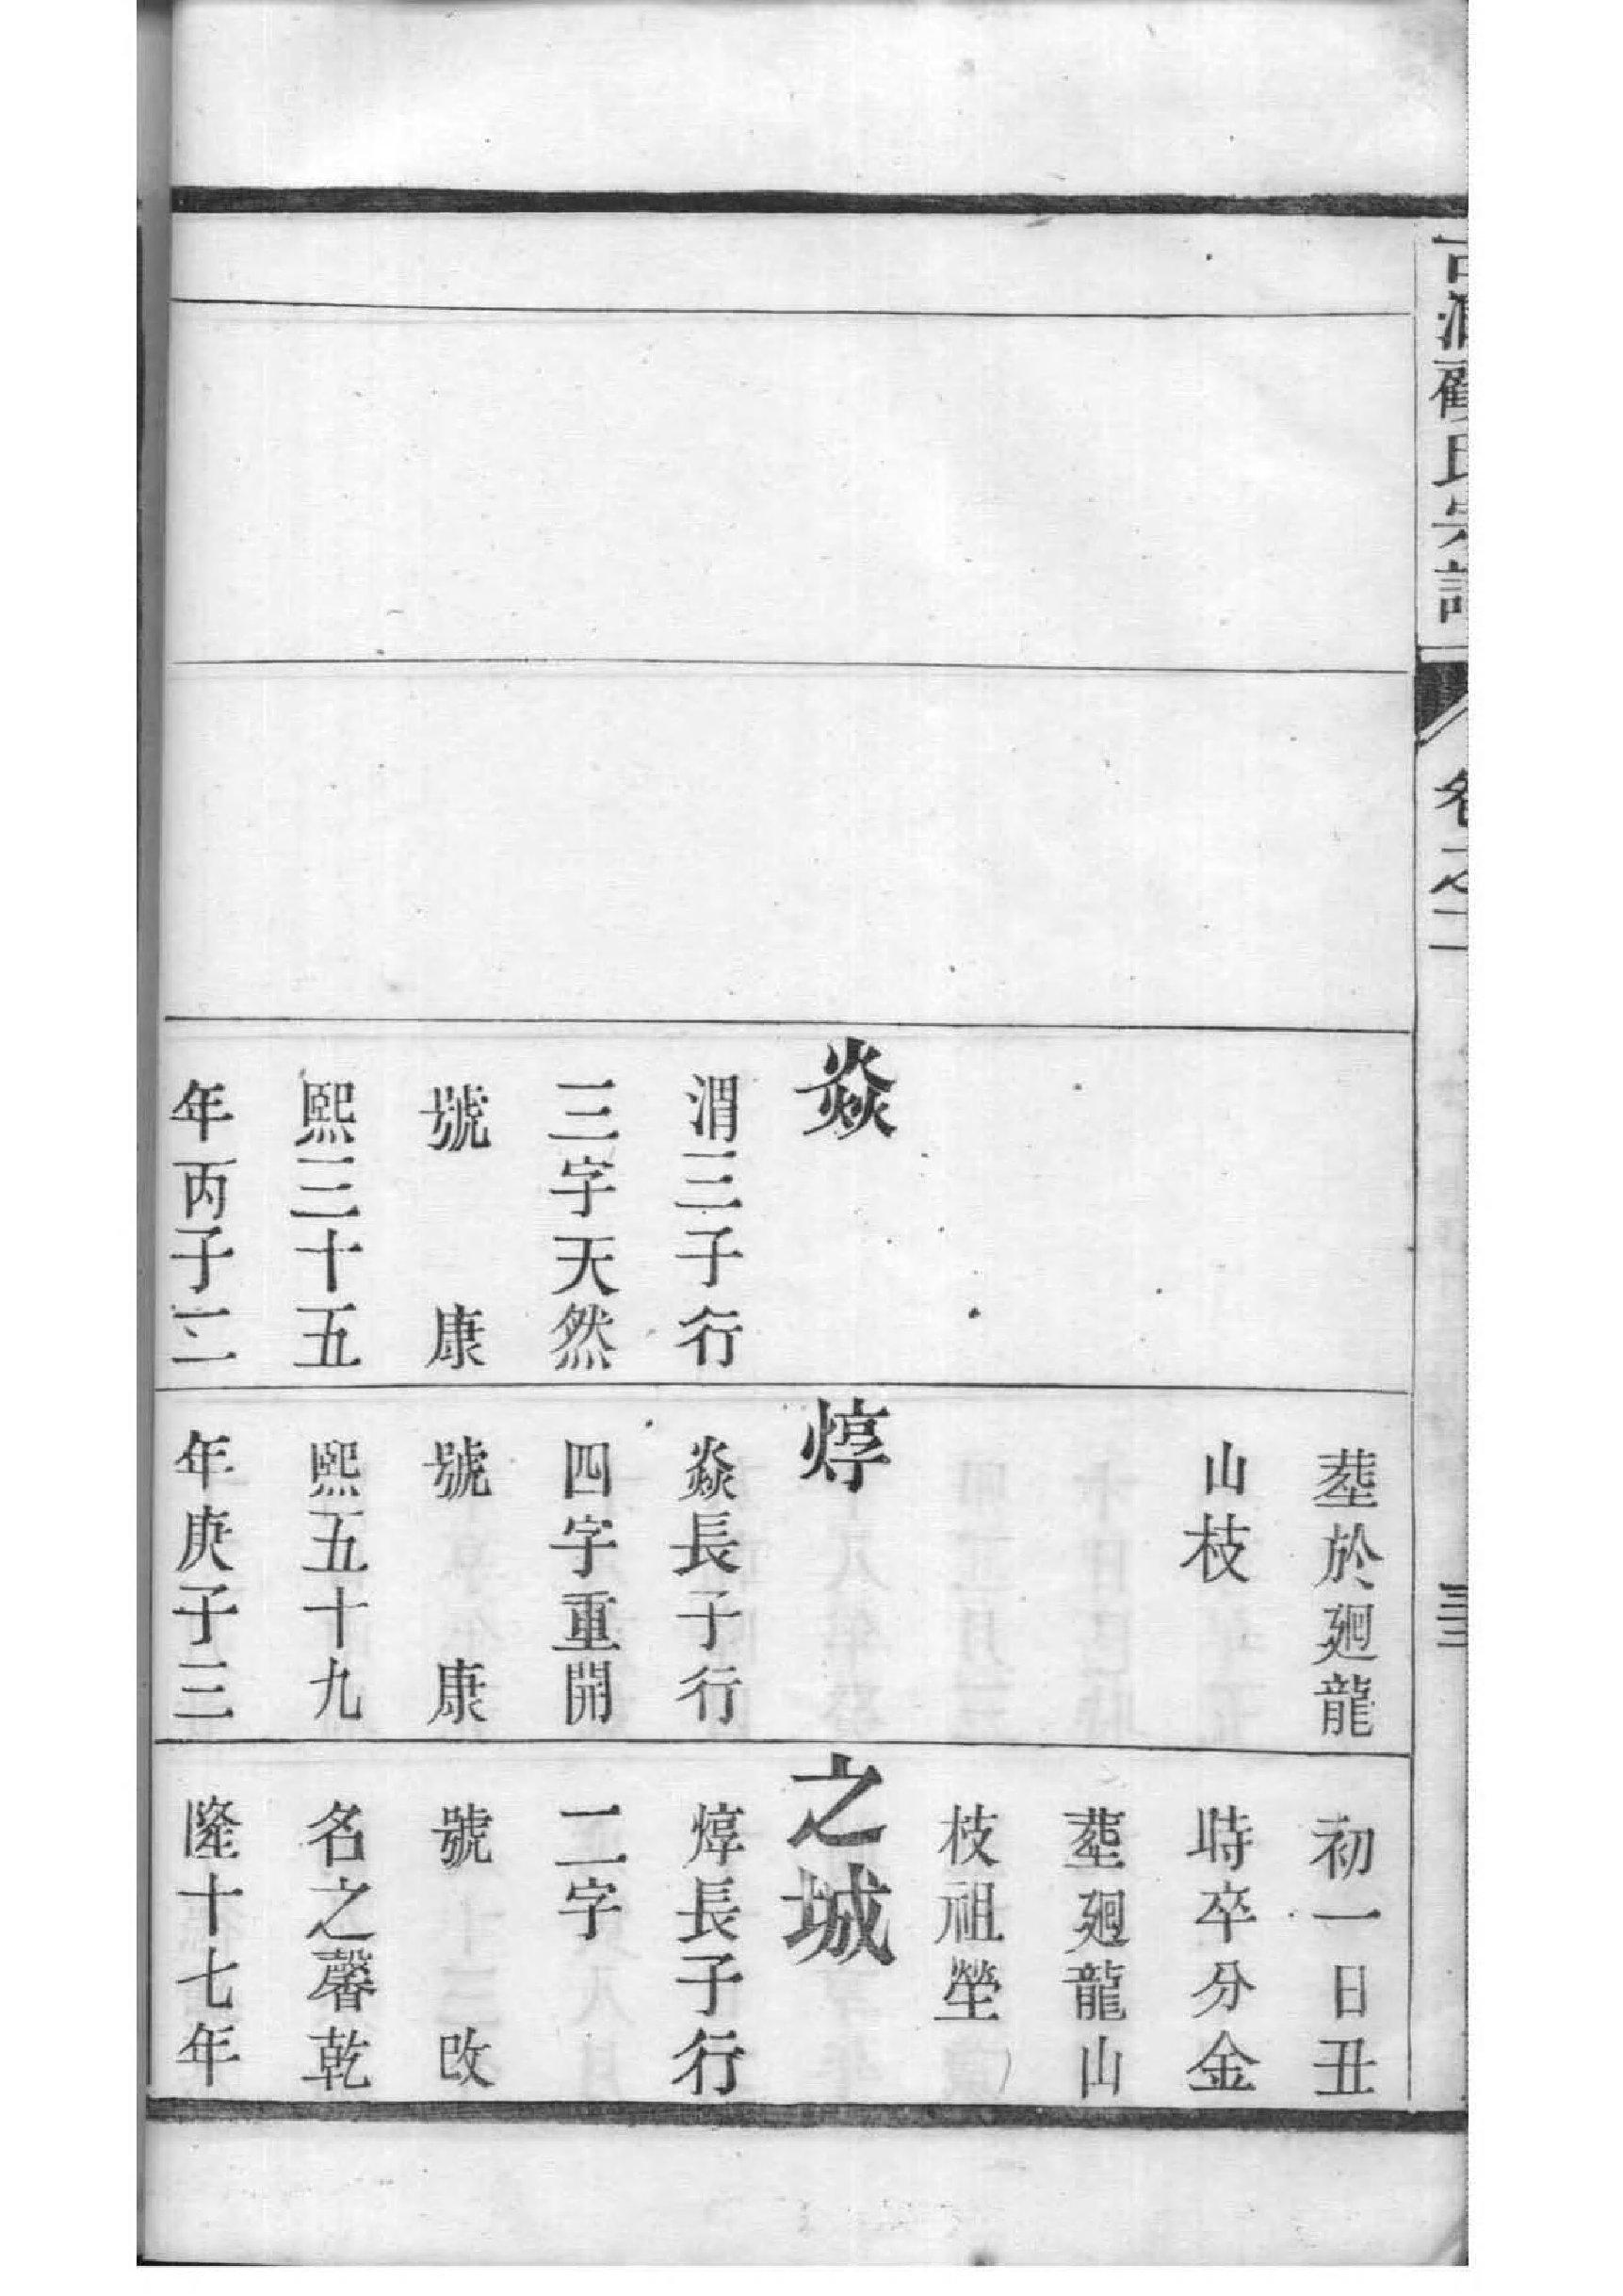 顧氏宗譜
卷之二
焱
渭三子行
三字天然
號　康
熙三十五
年丙子二
塟於廻龍
山枝
焞
焱長子行
四字重開
號　康
熙五十九
年庚子三
初一日丑
時卒分金
塟廻龍山
枝祖塋
之城
焞長子行
二字
號　改
名之馨乾
隆十七年